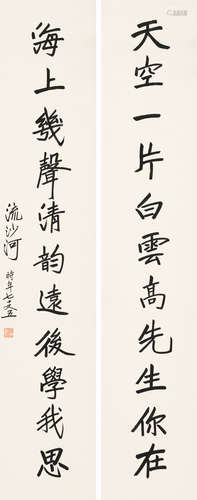 天空一片白雲高先生你在
海上幾聲清韵遠後學我思
流沙河 時年七又五